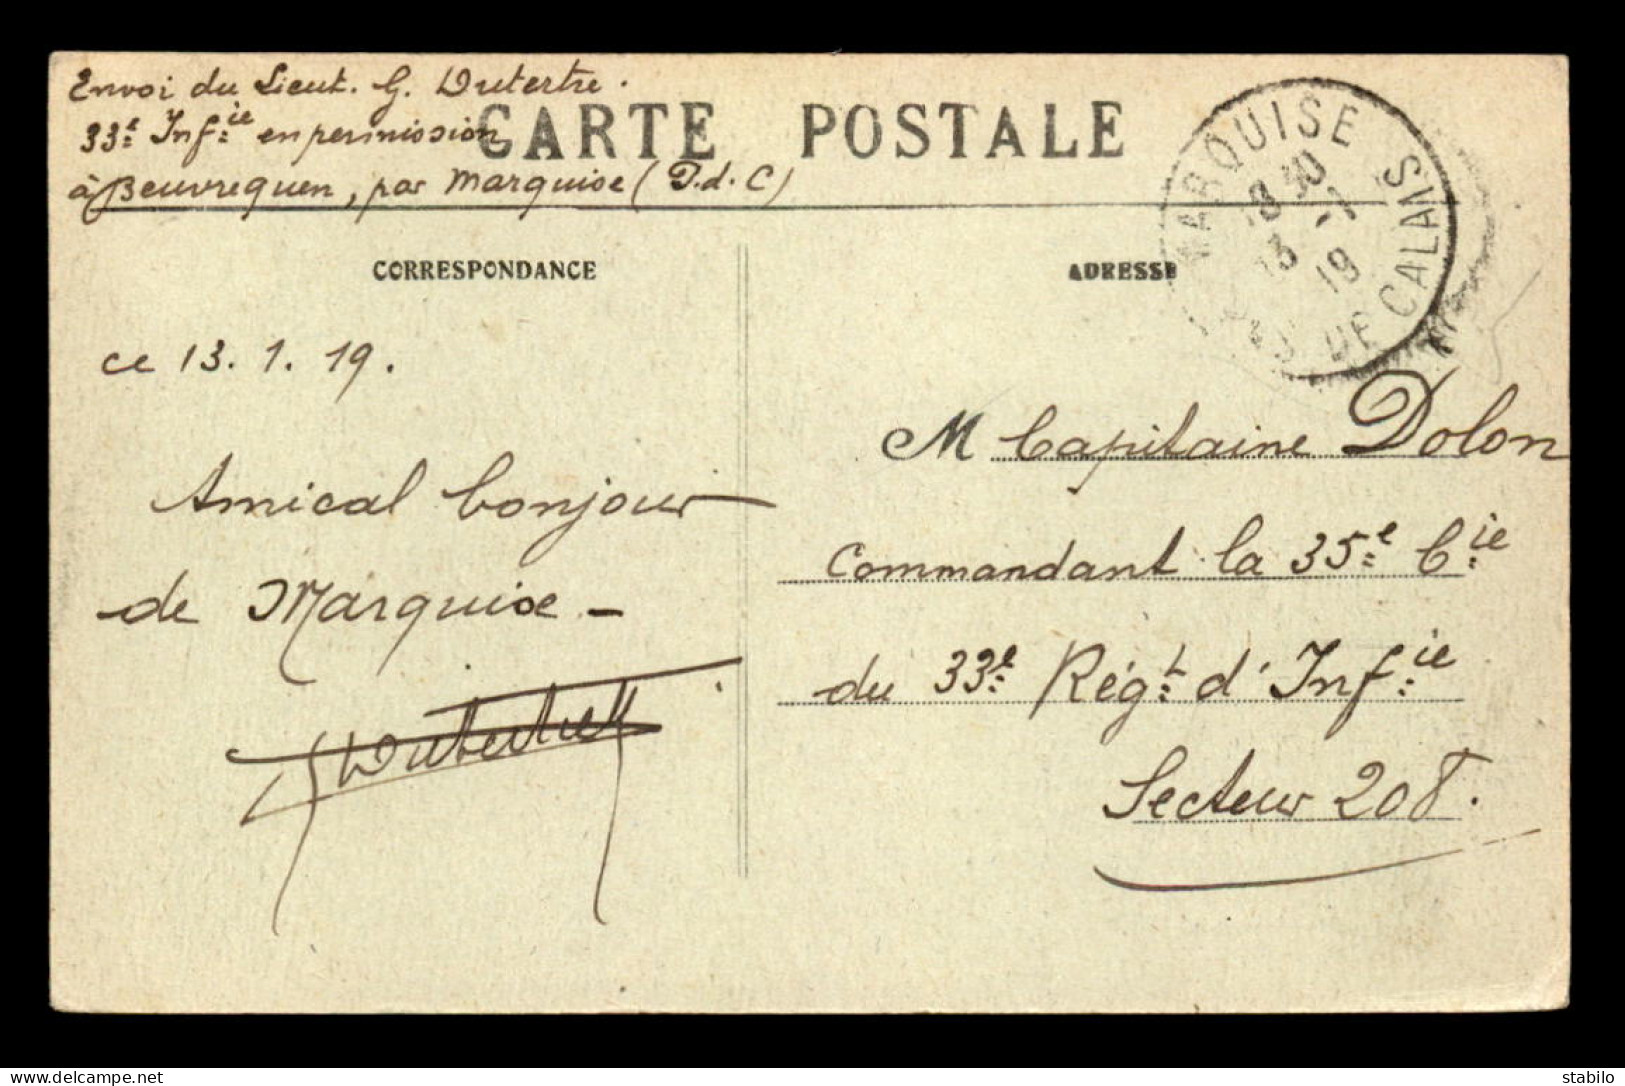 Envoi du Lieut. G. Dutertre.
33e Infie en permission
à Beuvrequen, par Marquise (P.d.C)
CARTE POSTALE
MARQUISE
18 30
13 -1
19
PAS DE CALAIS
CORRESPONDANCE
ADRESSE
ce 13.1.19.
Amical bonjour
de Marquise -
GDutertre
M Capitaine Dolon
Commandant la 35e Cie
du 33e Régt d'Infie
Secteur 208.
delcampe.net
stabilo